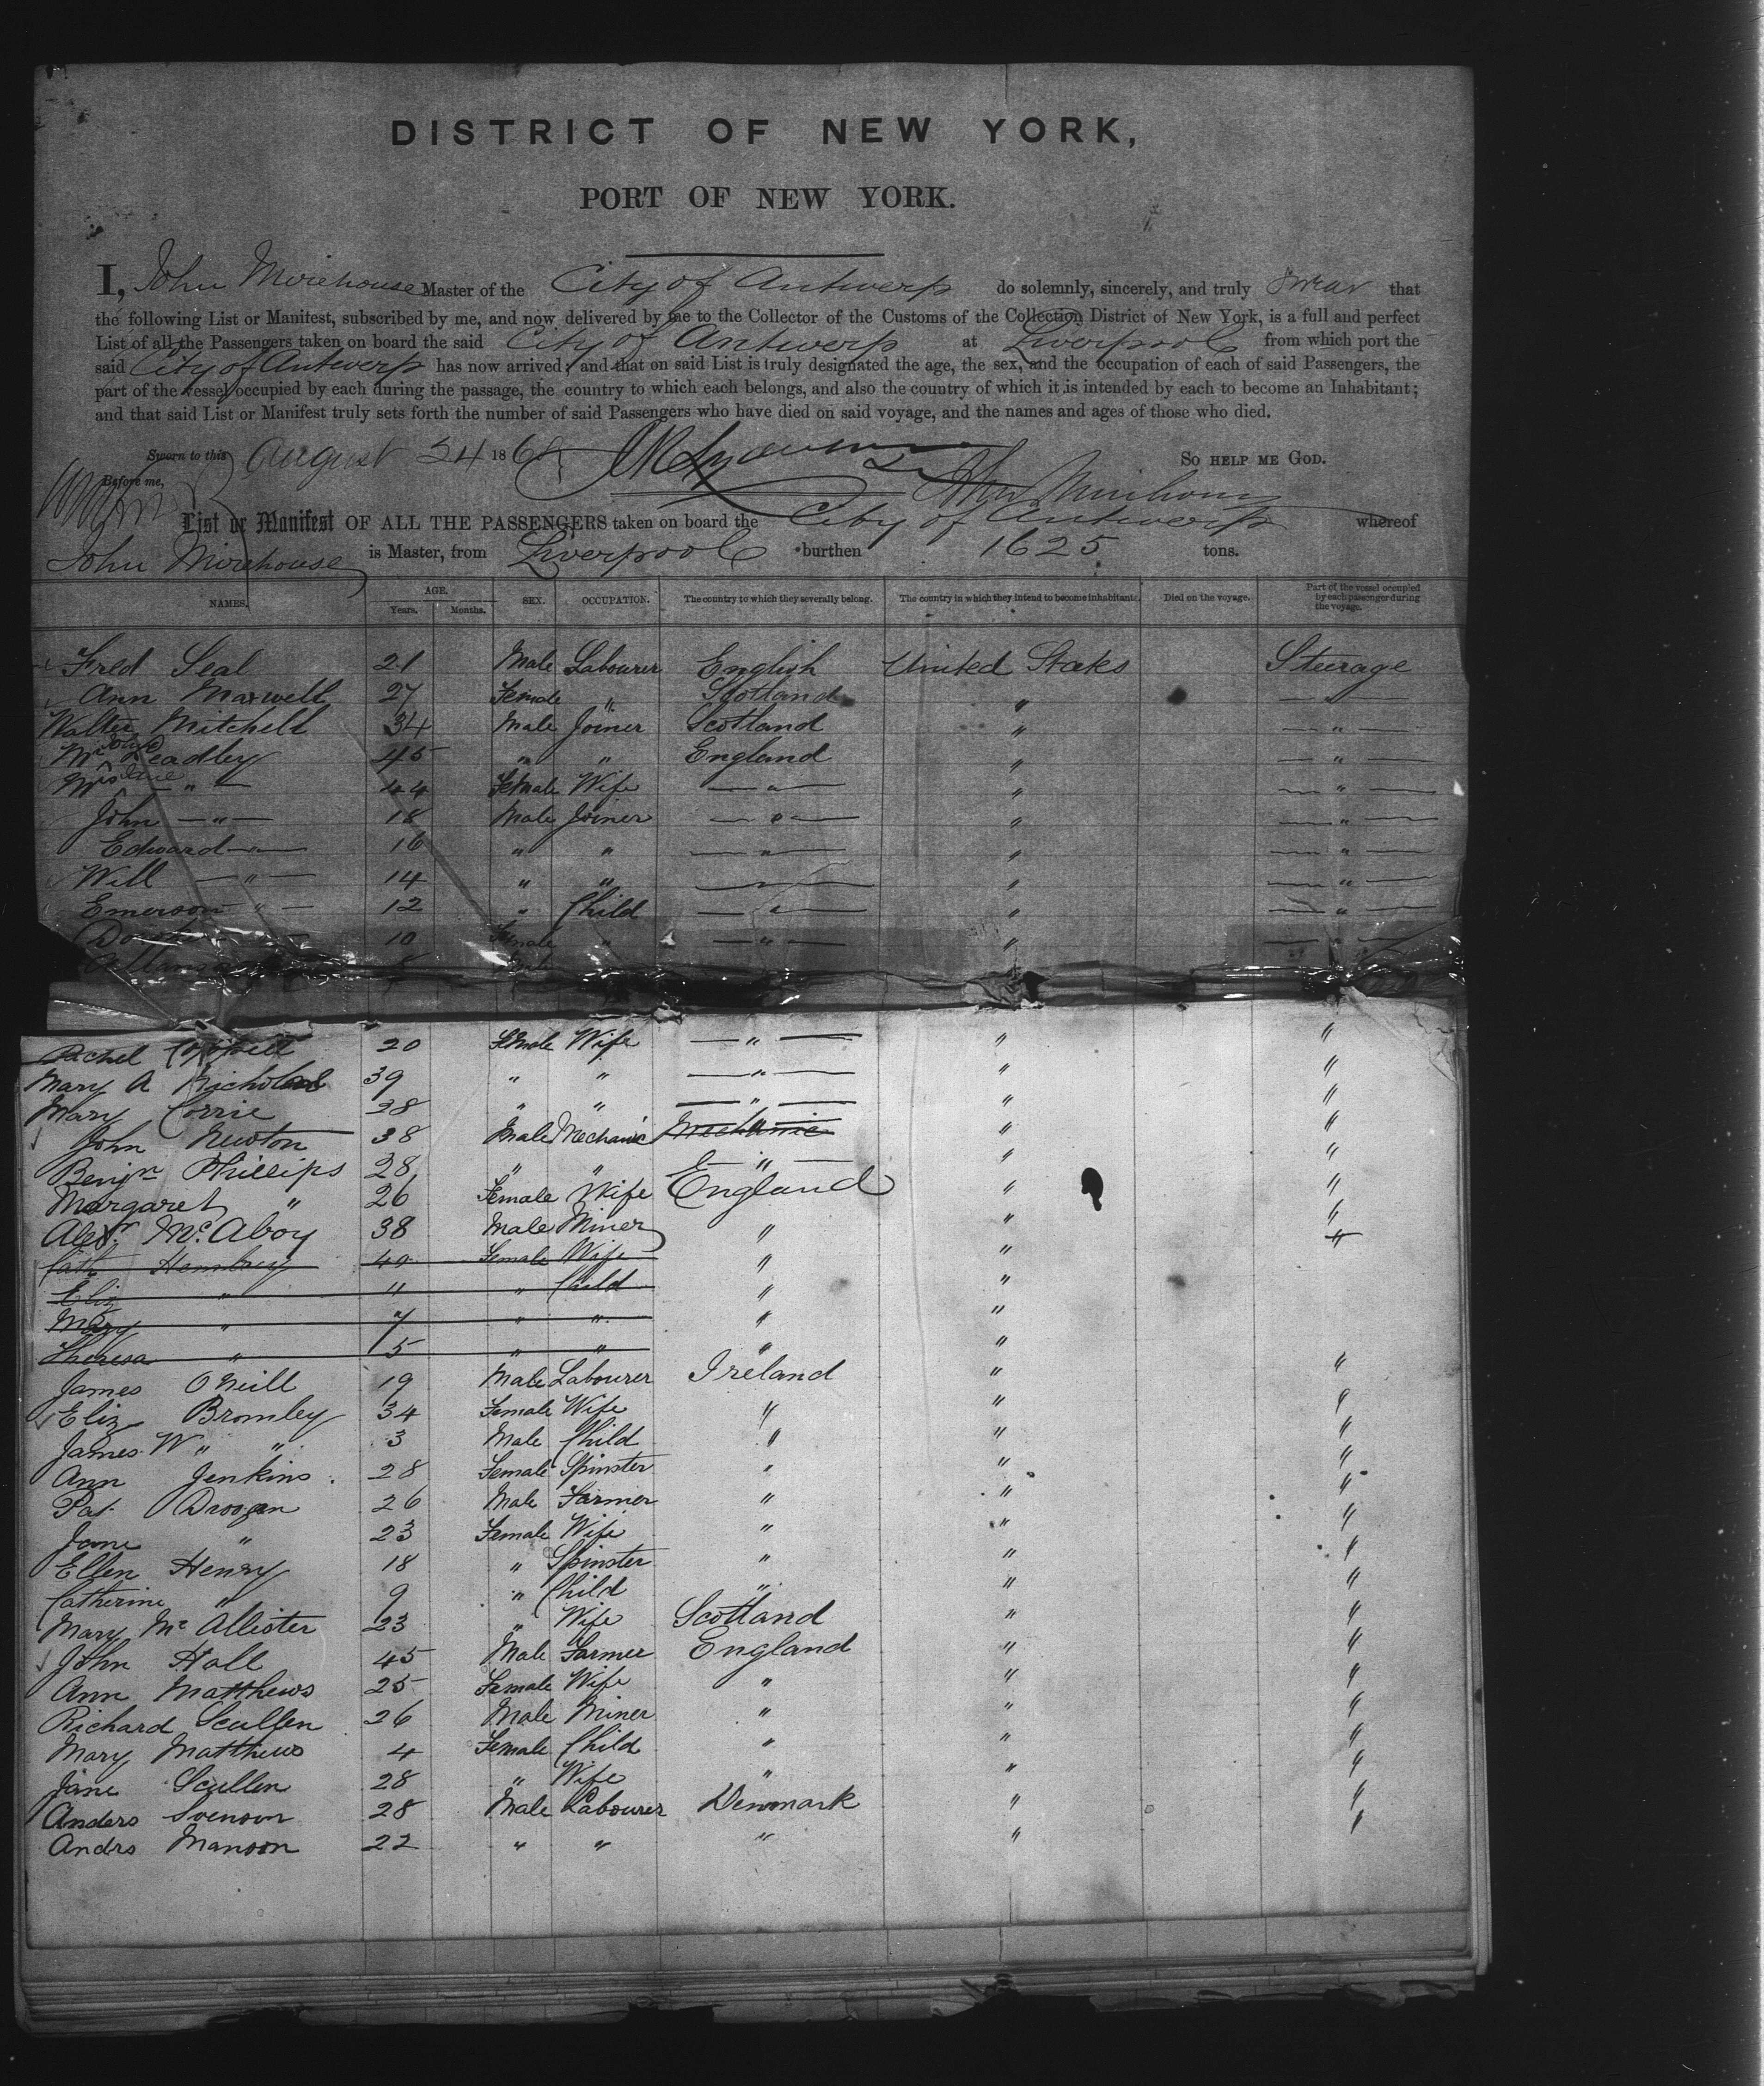 DISTRICT OF NEW YORK,
PORT OF NEW YORK.
I, John Mirehouse Master of the City of Antwerp do solemnly, sincerely, and truly Swear that
the following List or Manifest, subscribed by me, and now delivered by me to the Collector of the Customs of the Collection District of New York, is a full and perfect
List of all the Passengers taken on board the said City of Antwerp at Liverpool from which port the
said City of Antwerp has now arrived; and that on said List is truly designated the age, the sex, and the occupation of each of said Passengers, the
part of the vessel occupied by each during the passage, the country to which each belongs, and also the country of which it is intended by each to become an Inhabitant;
and that said List or Manifest truly sets forth the number of said Passengers who have died on said voyage, and the names and ages of those who died.
Sworn to this August 24 186 So HELP ME GOD.
Before me, John Mirehouse
List or Manifest OF ALL THE PASSENGERS taken on board the City of Antwerp whereof
John Mirehouse is Master, from Liverpool burthen 1625 tons.
NAMES. AGE. Years. Months. SEX. OCCUPATION. The country to which they severally belong. The country in which they intend to become inhabitants. Died on the voyage. Part of the vessel occupied by each passenger during the voyage.
Fred Seal 21 Male Labourer English United States Steerage
Ann Maxwell 27 Female " Scotland " — " —
Walter Mitchell 34 Male Joiner Scotland " — " —
Mr Leadley 45 " " England " — " —
Mrs — " — 44 Female Wife — " — " — " —
John — " — 18 Male Joiner — " — " — " —
Edward — " — 16 " " — " — " — " —
Will — " — 14 " " — " — " — " —
Emerson — " — 12 " Child — " — " — " —
10 Female " — " — " — " —
Rachel 20 Female Wife — " — " "
Mary A Nicholas 39 " " — " — " "
Mary Corrie 38 " " — " — " "
John Newton 38 Male Mechanic Mechanic " "
Benjn Phillips 28 " " — " — " "
Margaret " 26 Female Wife England " "
Alexr. McAboy 38 Male Miner " " "
Cath Hembury 40 Female Wife " " "
Eliz " 11 " Child " "
Mary " 7 " " " "
Theresa " 5 " " " "
James O Neill 19 Male Labourer Ireland " "
Eliz Bromley 34 Female Wife " " "
James W " " 3 Male Child " " "
Ann Jenkins. 28 Female Spinster " " "
Pat Droogan 26 Male Farmer " " "
Jane " 23 Female Wife " " "
Ellen Henry 18 " Spinster " " "
Catherine " 9 " Child " " "
Mary McAllister 23 " Wife Scotland " "
John Hall 45 Male Farmer England " "
Ann Matthews 25 Female Wife " " "
Richard Scullen 26 Male Miner " " "
Mary Matthews 4 Female Child " " "
Jane Scullen 28 " Wife " " "
Anders Svenson 28 Male Labourer Denmark " "
Andrs Manson 22 " " " " "